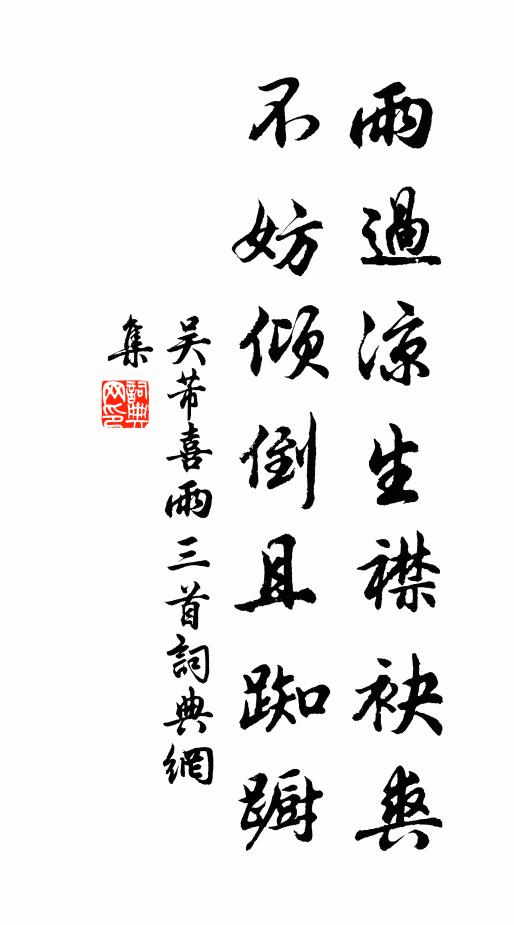 雨過涼生襟袂爽
不妨傾倒且踟躕
吴芾喜雨三首詞典網
集
詞典網印